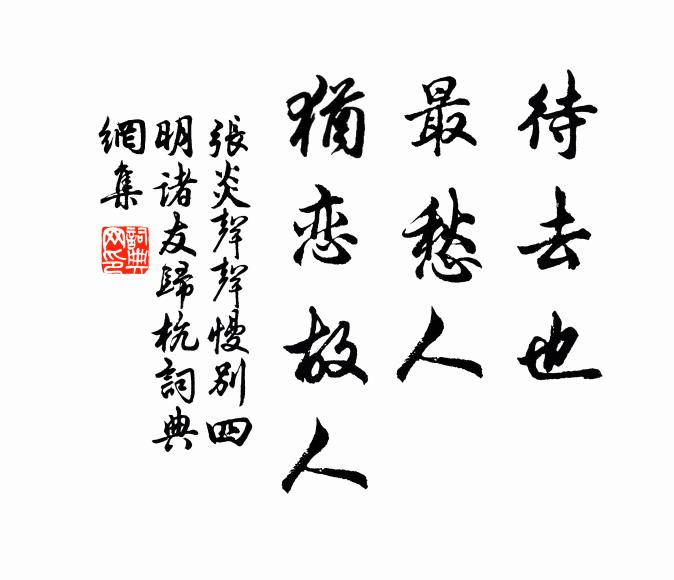 待去也
最愁人
猶恋故人
張炎聲聲慢別四
明諸友歸杭詞典
網集
詞典
网印